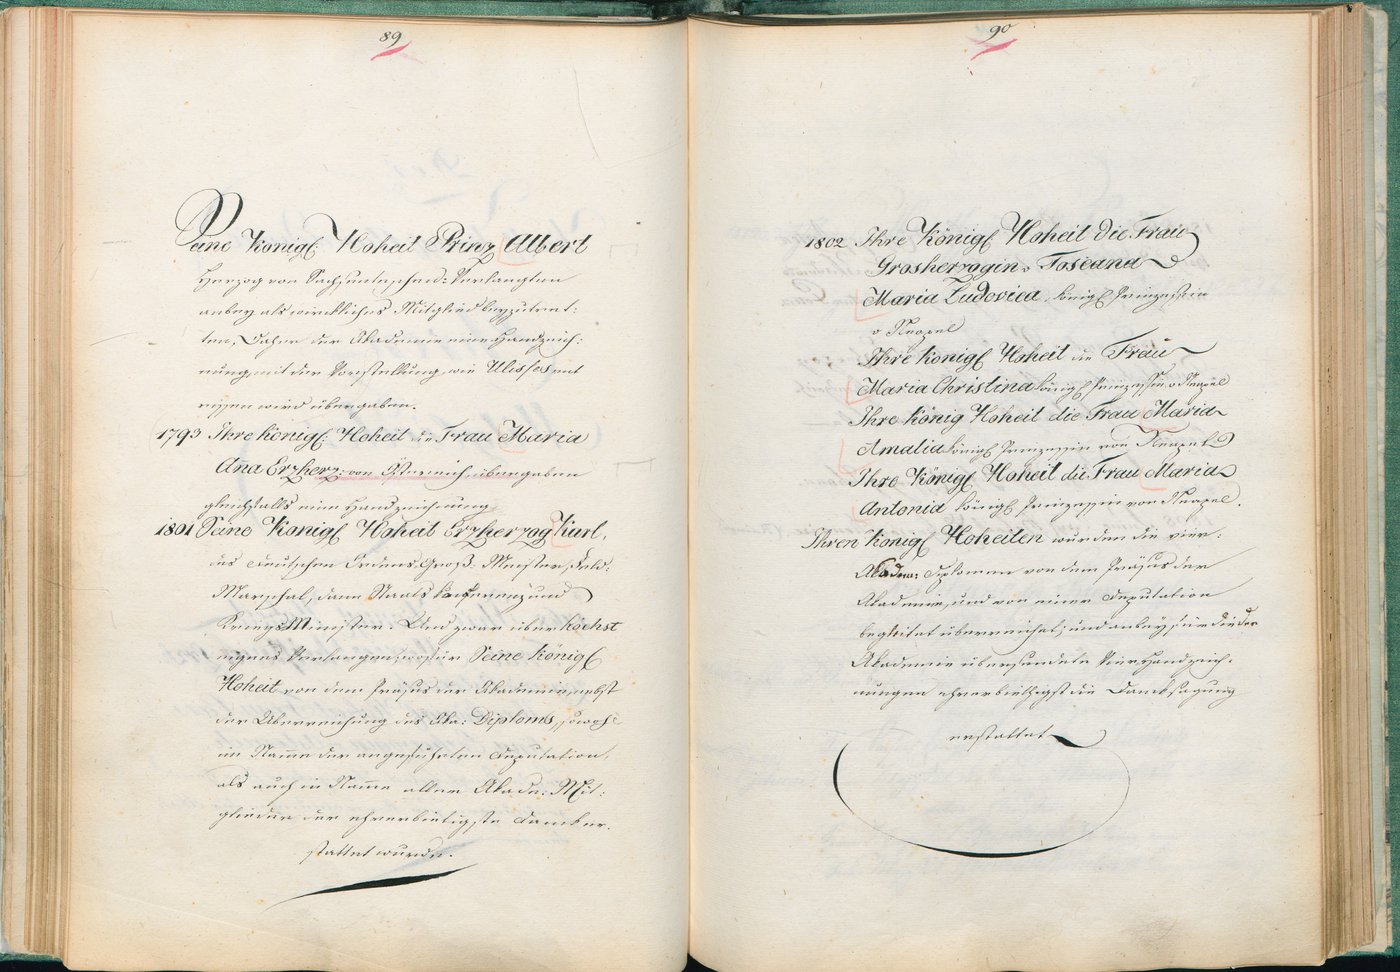 89
Seine Königl: Hoheit Prinz Albert
Herzog von Sachsenteschen: Verlangten
anbey als wirkliches Mitglied beyzutret:
ten, Daher der Akademie eine Handzeich:
nung, mit der Vorstellung, wie Ulisses ent
rissen wird übergaben.
1793 Ihre Königl: Hoheit die Frau Maria
Aña Erzherz: von Österreich übergaben
gleichfalls eine Handzeichnung
1801 Seine Königl Hoheit Erzherzog Karl,
des deutschen Ordens Groß: Meister, Feld:
Marschal, dann Staats Konferenz und
Kriegs Minister. Und zwar über höchst
eigenes Verlangen wofür Seine Königl
Hoheit von dem Präsus der Akademie, nebst
der Überreichung des Aka: Diploms, sowohl
im Namen der angeführten Deputation,
als auch in Name aller Akade: Mit:
glieder der ehrerbietigste Dank er:
stattet wurde.
90
1802 Ihre Königl Hoheit die Frau
Grosherzogin v Toscana
Maria Ludovica, königl Prinzessin
v Neapel
Ihre Königl Hoheit die Frau
Maria Christina königl Prinzessin v Neapel
Ihre König Hoheit die Frau Maria
Amalia königl Prinzessin von Neapel
Ihre Königl Hoheit die Frau Maria
Antonia königl Prinzessin von Neapel.
Ihren Königl Hoheiten wurden die vier:
Akadem: Diplomen von dem Präsus der
Akademie, und von einer Deputation
begleitet überreichet, und anbey für die der
Akademie übersendete Vier Handzeich:
nungen ehrerbiethigst die Danksagung
erstattet